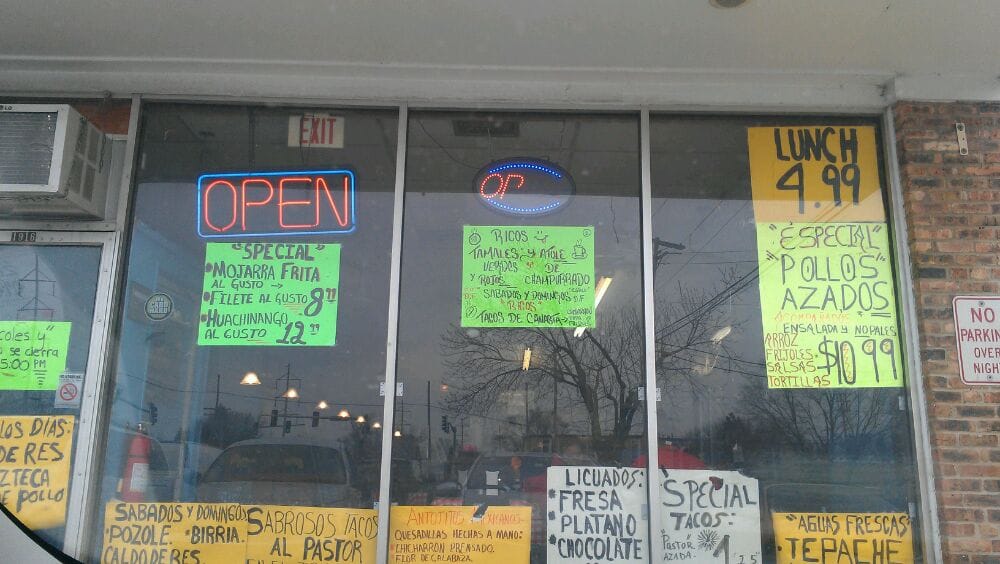 EXIT
OPEN
OP
196
"SPECIAL"
•MOJARRA FRITA
AL GUSTO →
•FILETE AL GUSTO 8.99
•HUACHINANGO
AL GUSTO 12.99
RICOS
TAMALES Y ATOLE
VERDES DE
Y ROJOS CHAMPURRADO
SABADOS Y DOMINGOS
"RICOS"
TACOS DE CANASTA
D.F
LUNCH
4.99
"ESPECIAL"
POLLOS
AZADOS
ACOMPAÑADOS
ENSALADA Y NOPALES
ARROZ
FRIJOLES
SALSAS
TORTILLAS
$10.99
NO
PARKING
OVER
NIGHT
COLES Y
o se cierra
5:00 PM
LOS DÍAS:
DE RES
ZTECA
DE POLLO
SABADOS Y DOMINGOS
•POZOLE •BIRRIA
CALDO DE RES
SABROSOS TACOS
AL PASTOR
ANTOJITOS MEXICANOS
QUESADILLAS HECHAS A MANO:
CHICHARRÓN PRENSADO.
FLOR DE CALABAZA.
LICUADOS:
•FRESA
•PLATANO
•CHOCOLATE
SPECIAL
TACOS:
Pastor
AZADA.
1.25
"AGUAS FRESCAS"
•TEPACHE